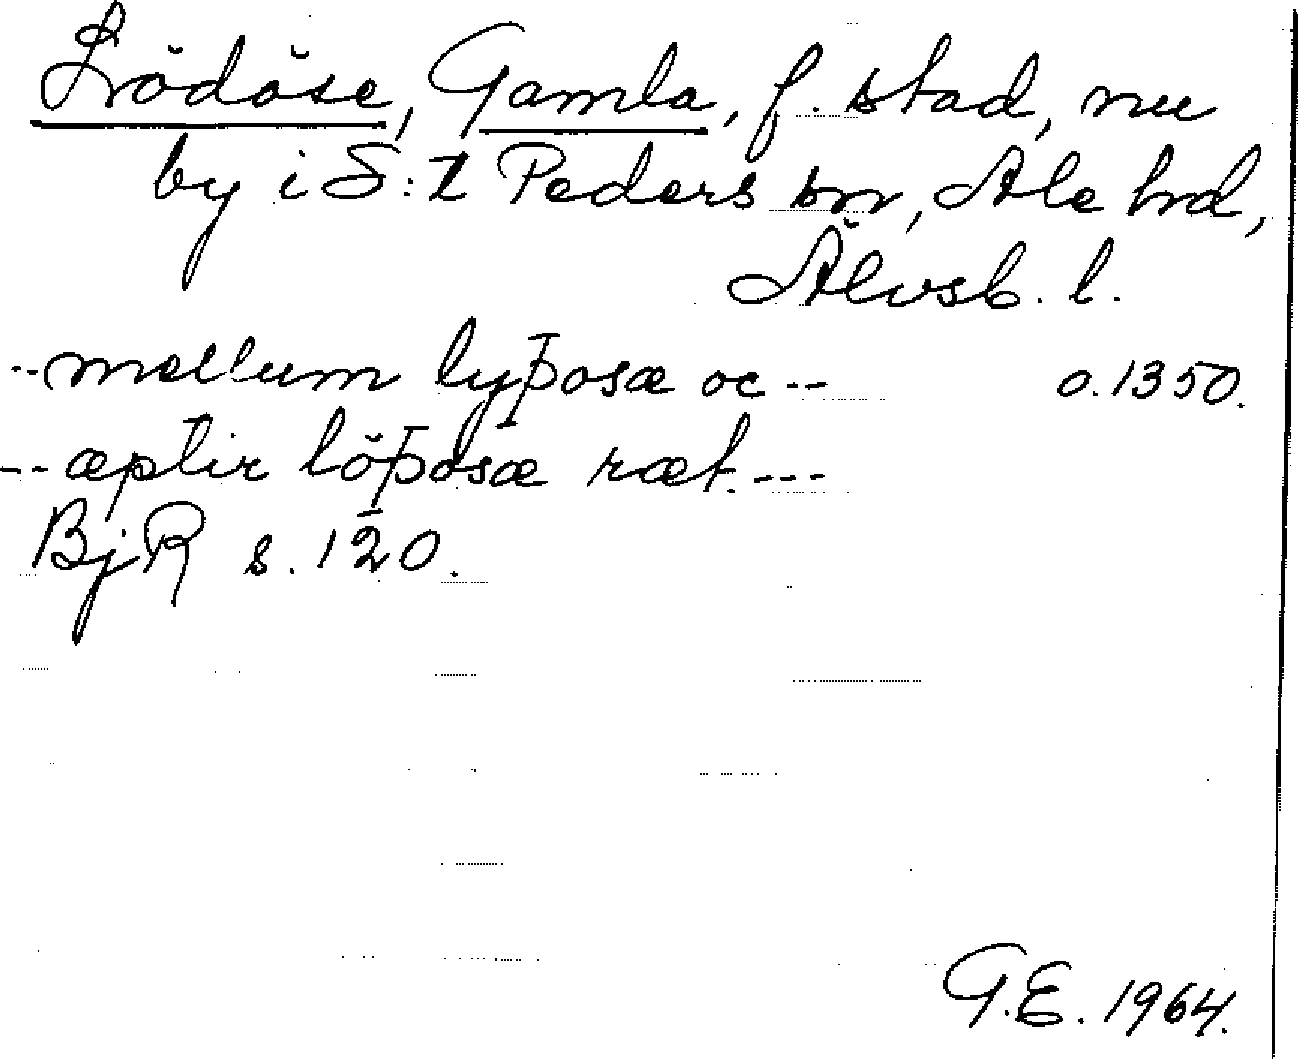 Lödöse, Gamla, f. stad, nu
by i S:t Peders sn, Ale hd,
Älvsb. l.
--mellum lyþosæ oc -- o. 1350.
--æptir löþosæ ræt.---
BjR s. 120.
G.E. 1964.